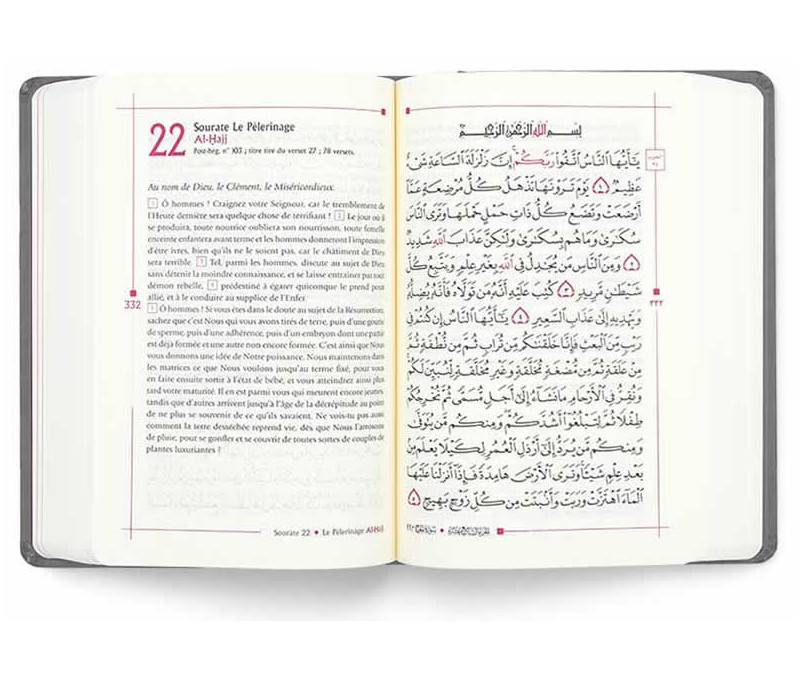 22
Sourate Le Pèlerinage
Al-Ḥajj
Post-hég. n° 103 ; titre tiré du verset 27 ; 78 versets.
Au nom de Dieu, le Clément, le Miséricordieux.
1 Ô hommes ! Craignez votre Seigneur, car le tremblement de
l'Heure dernière sera quelque chose de terrifiant ! 2 Le jour où il
se produira, toute nourrice oubliera son nourrisson, toute femelle
enceinte enfantera avant terme et les hommes donneront l'impression
d'être ivres, bien qu'ils ne le soient pas, car le châtiment de Dieu
sera terrible. 3 Tel, parmi les hommes, discute au sujet de Dieu
sans détenir la moindre connaissance, et se laisse entraîner par tout
démon rebelle, 4 prédestiné à égarer quiconque le prend pour
allié, et à le conduire au supplice de l'Enfer.
5 Ô hommes ! Si vous êtes dans le doute au sujet de la Résurrection,
sachez que c'est Nous qui vous avons tirés de terre, puis d'une goutte
de sperme, puis d'une adhérence, puis d'un embryon dont une partie
est déjà formée et une autre non encore formée. C'est ainsi que Nous
vous donnons une idée de Notre puissance. Nous maintenons dans
les matrices ce que Nous voulons jusqu'au terme fixé, pour vous
en faire ensuite sortir à l'état de bébé, et vous atteindrez ainsi plus
tard votre maturité. Il en est parmi vous qui meurent encore jeunes
tandis que d'autres arrivent jusqu'à l'âge de la décrépitude au point
de ne plus se souvenir de ce qu'ils savaient. Ne vois-tu pas aussi
comment la terre desséchée reprend vie, dès que Nous l'arrosons
de pluie, pour se gonfler et se couvrir de toutes sortes de couples de
plantes luxuriantes ?
332
Sourate 22 ◆ Le Pèlerinage Al-Ḥajj
بِسْمِ ٱللَّهِ ٱلرَّحْمَٰنِ ٱلرَّحِيمِ
يَٰٓأَيُّهَا ٱلنَّاسُ ٱتَّقُوا۟ رَبَّكُمْ إِنَّ زَلْزَلَةَ ٱلسَّاعَةِ شَىْءٌ
عَظِيمٌ ١ يَوْمَ تَرَوْنَهَا تَذْهَلُ كُلُّ مُرْضِعَةٍ عَمَّآ
أَرْضَعَتْ وَتَضَعُ كُلُّ ذَاتِ حَمْلٍ حَمْلَهَا وَتَرَى ٱلنَّاسَ
سُكَٰرَىٰ وَمَا هُم بِسُكَٰرَىٰ وَلَٰكِنَّ عَذَابَ ٱللَّهِ شَدِيدٌ
٢ وَمِنَ ٱلنَّاسِ مَن يُجَٰدِلُ فِى ٱللَّهِ بِغَيْرِ عِلْمٍ وَيَتَّبِعُ كُلَّ
شَيْطَٰنٍ مَّرِيدٍ ٣ كُتِبَ عَلَيْهِ أَنَّهُۥ مَن تَوَلَّاهُ فَأَنَّهُۥ يُضِلُّهُۥ
وَيَهْدِيهِ إِلَىٰ عَذَابِ ٱلسَّعِيرِ ٤ يَٰٓأَيُّهَا ٱلنَّاسُ إِن كُنتُمْ فِى
رَيْبٍ مِّنَ ٱلْبَعْثِ فَإِنَّا خَلَقْنَٰكُم مِّن تُرَابٍ ثُمَّ مِن نُّطْفَةٍ ثُمَّ
مِنْ عَلَقَةٍ ثُمَّ مِن مُّضْغَةٍ مُّخَلَّقَةٍ وَغَيْرِ مُخَلَّقَةٍ لِّنُبَيِّنَ لَكُمْ
وَنُقِرُّ فِى ٱلْأَرْحَامِ مَا نَشَآءُ إِلَىٰٓ أَجَلٍ مُّسَمًّى ثُمَّ نُخْرِجُكُمْ
طِفْلًا ثُمَّ لِتَبْلُغُوٓا۟ أَشُدَّكُمْ وَمِنكُم مَّن يُتَوَفَّىٰ
وَمِنكُم مَّن يُرَدُّ إِلَىٰٓ أَرْذَلِ ٱلْعُمُرِ لِكَيْلَا يَعْلَمَ مِنۢ
بَعْدِ عِلْمٍ شَيْـًٔا وَتَرَى ٱلْأَرْضَ هَامِدَةً فَإِذَآ أَنزَلْنَا عَلَيْهَا
ٱلْمَآءَ ٱهْتَزَّتْ وَرَبَتْ وَأَنۢبَتَتْ مِن كُلِّ زَوْجٍۭ بَهِيجٍ ٥
٣٣٢